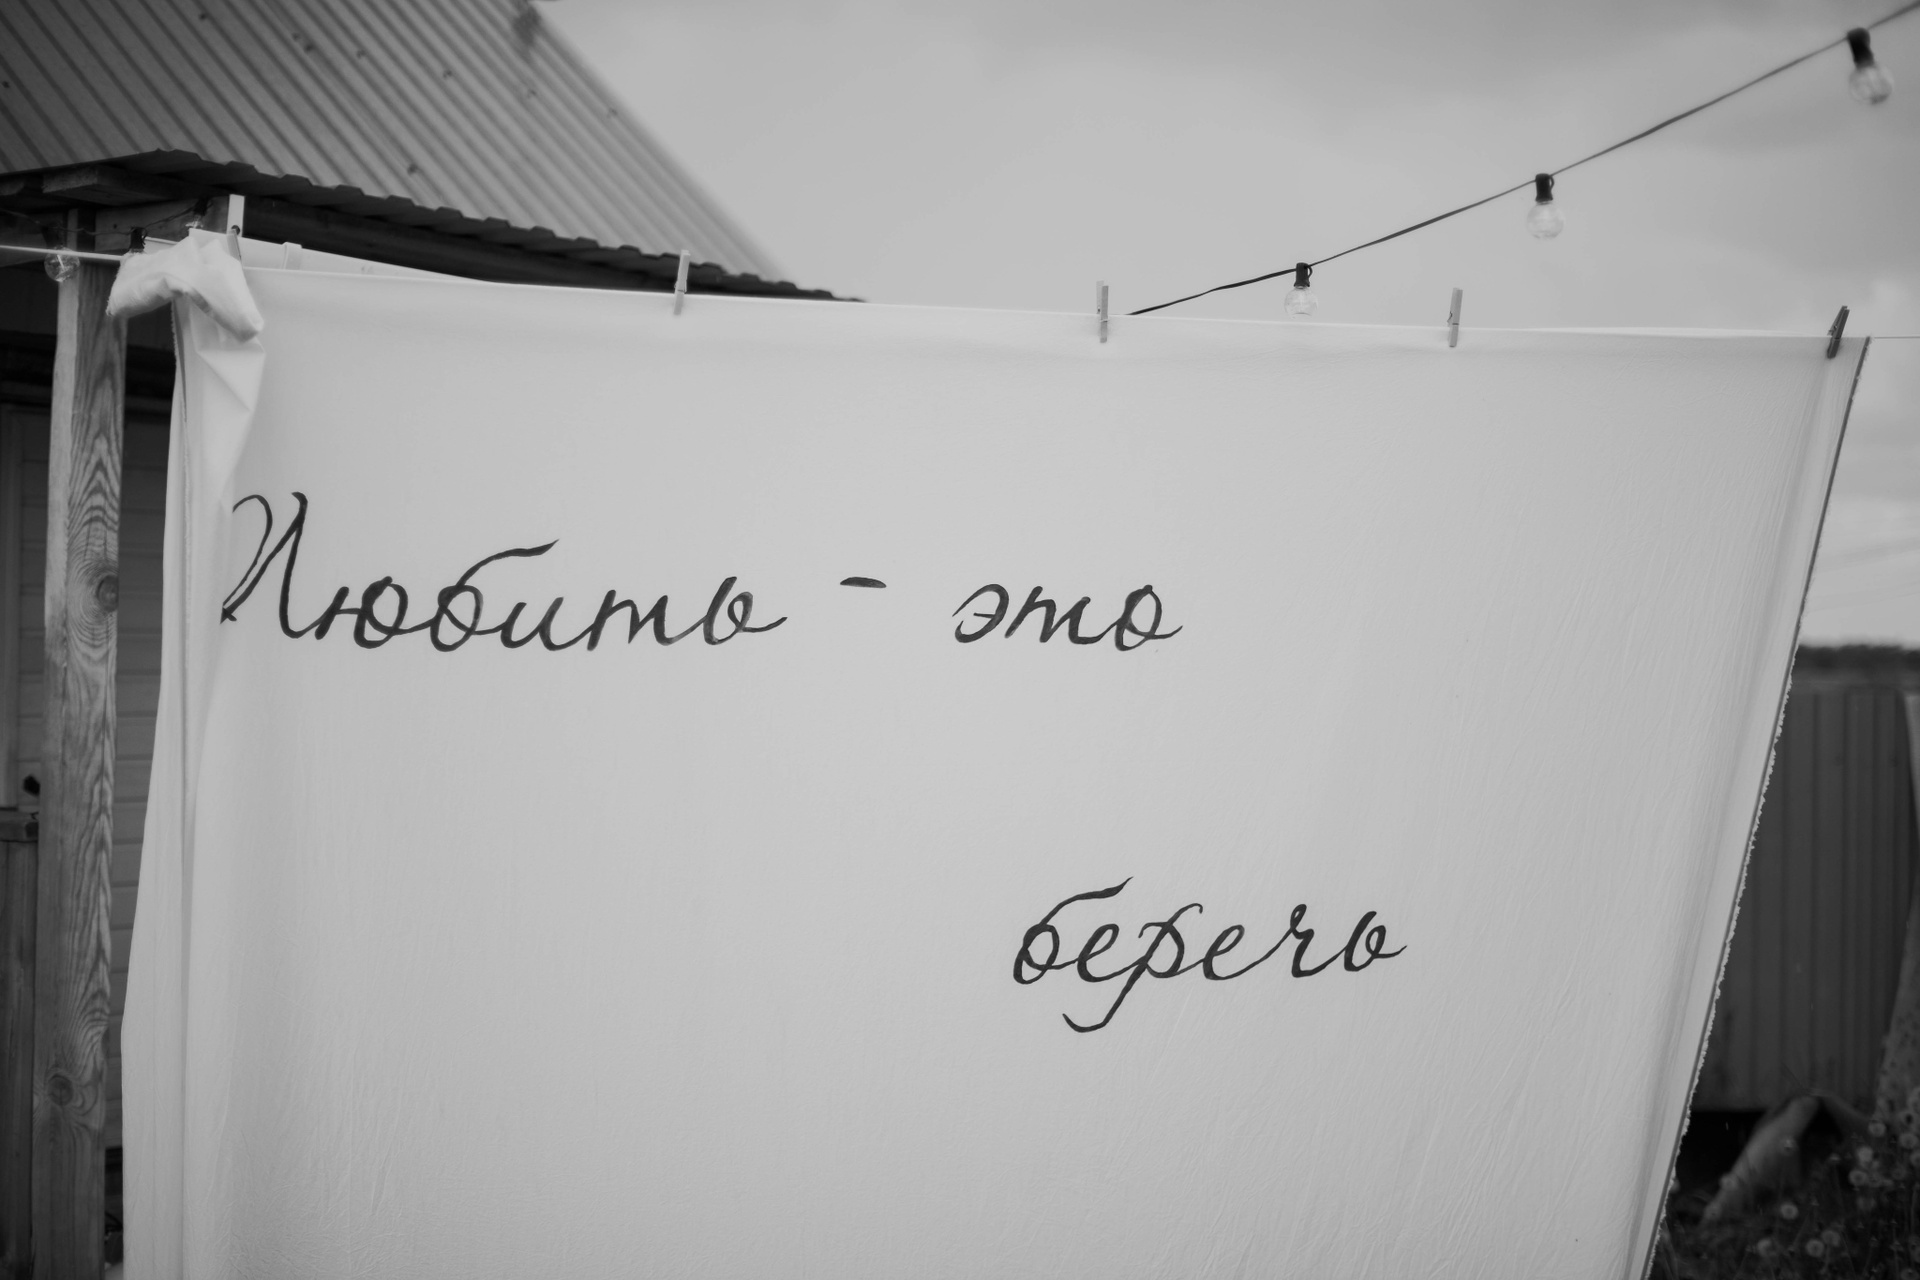 Любить - это
беречь